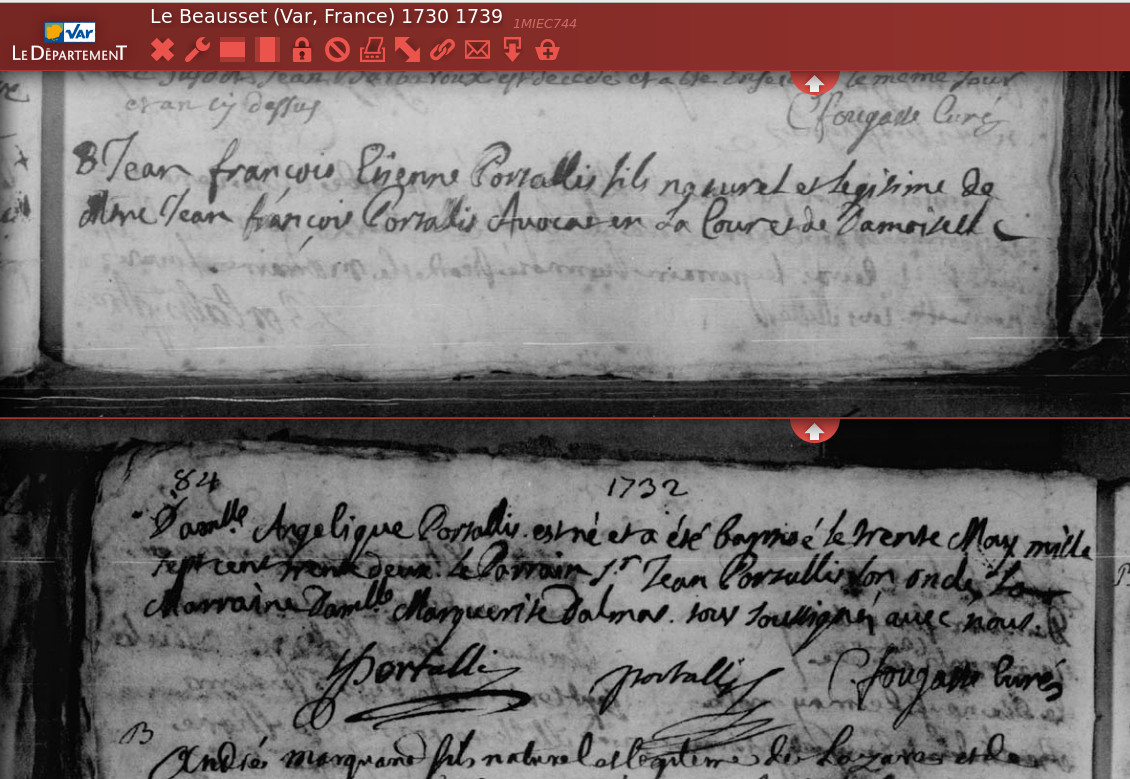 Le Beausset (Var, France) 1730 1739 1MIEC744
Var
LE DÉPARTEMENT
est décédé et a été le meme jour
et an cy dessus
Cfougasse Curé
B Jean françois Etienne Portallis fils naturel et legitime de
Mre Jean françois Portalis Avocat en La Cour et de Damoiselle
84
1732
Damlle Angelique Portallis est né et a été baptisé le trente May mille
sept cent trente deux. Le Parrain Sr Jean Portallis son oncle, La
Marraine Damlle Marguerite Dalmas. tous soussignés avec nous.
Portallis portallis Cfougasse Curé
B
André marquand fils naturel et legitime de Lazare et de